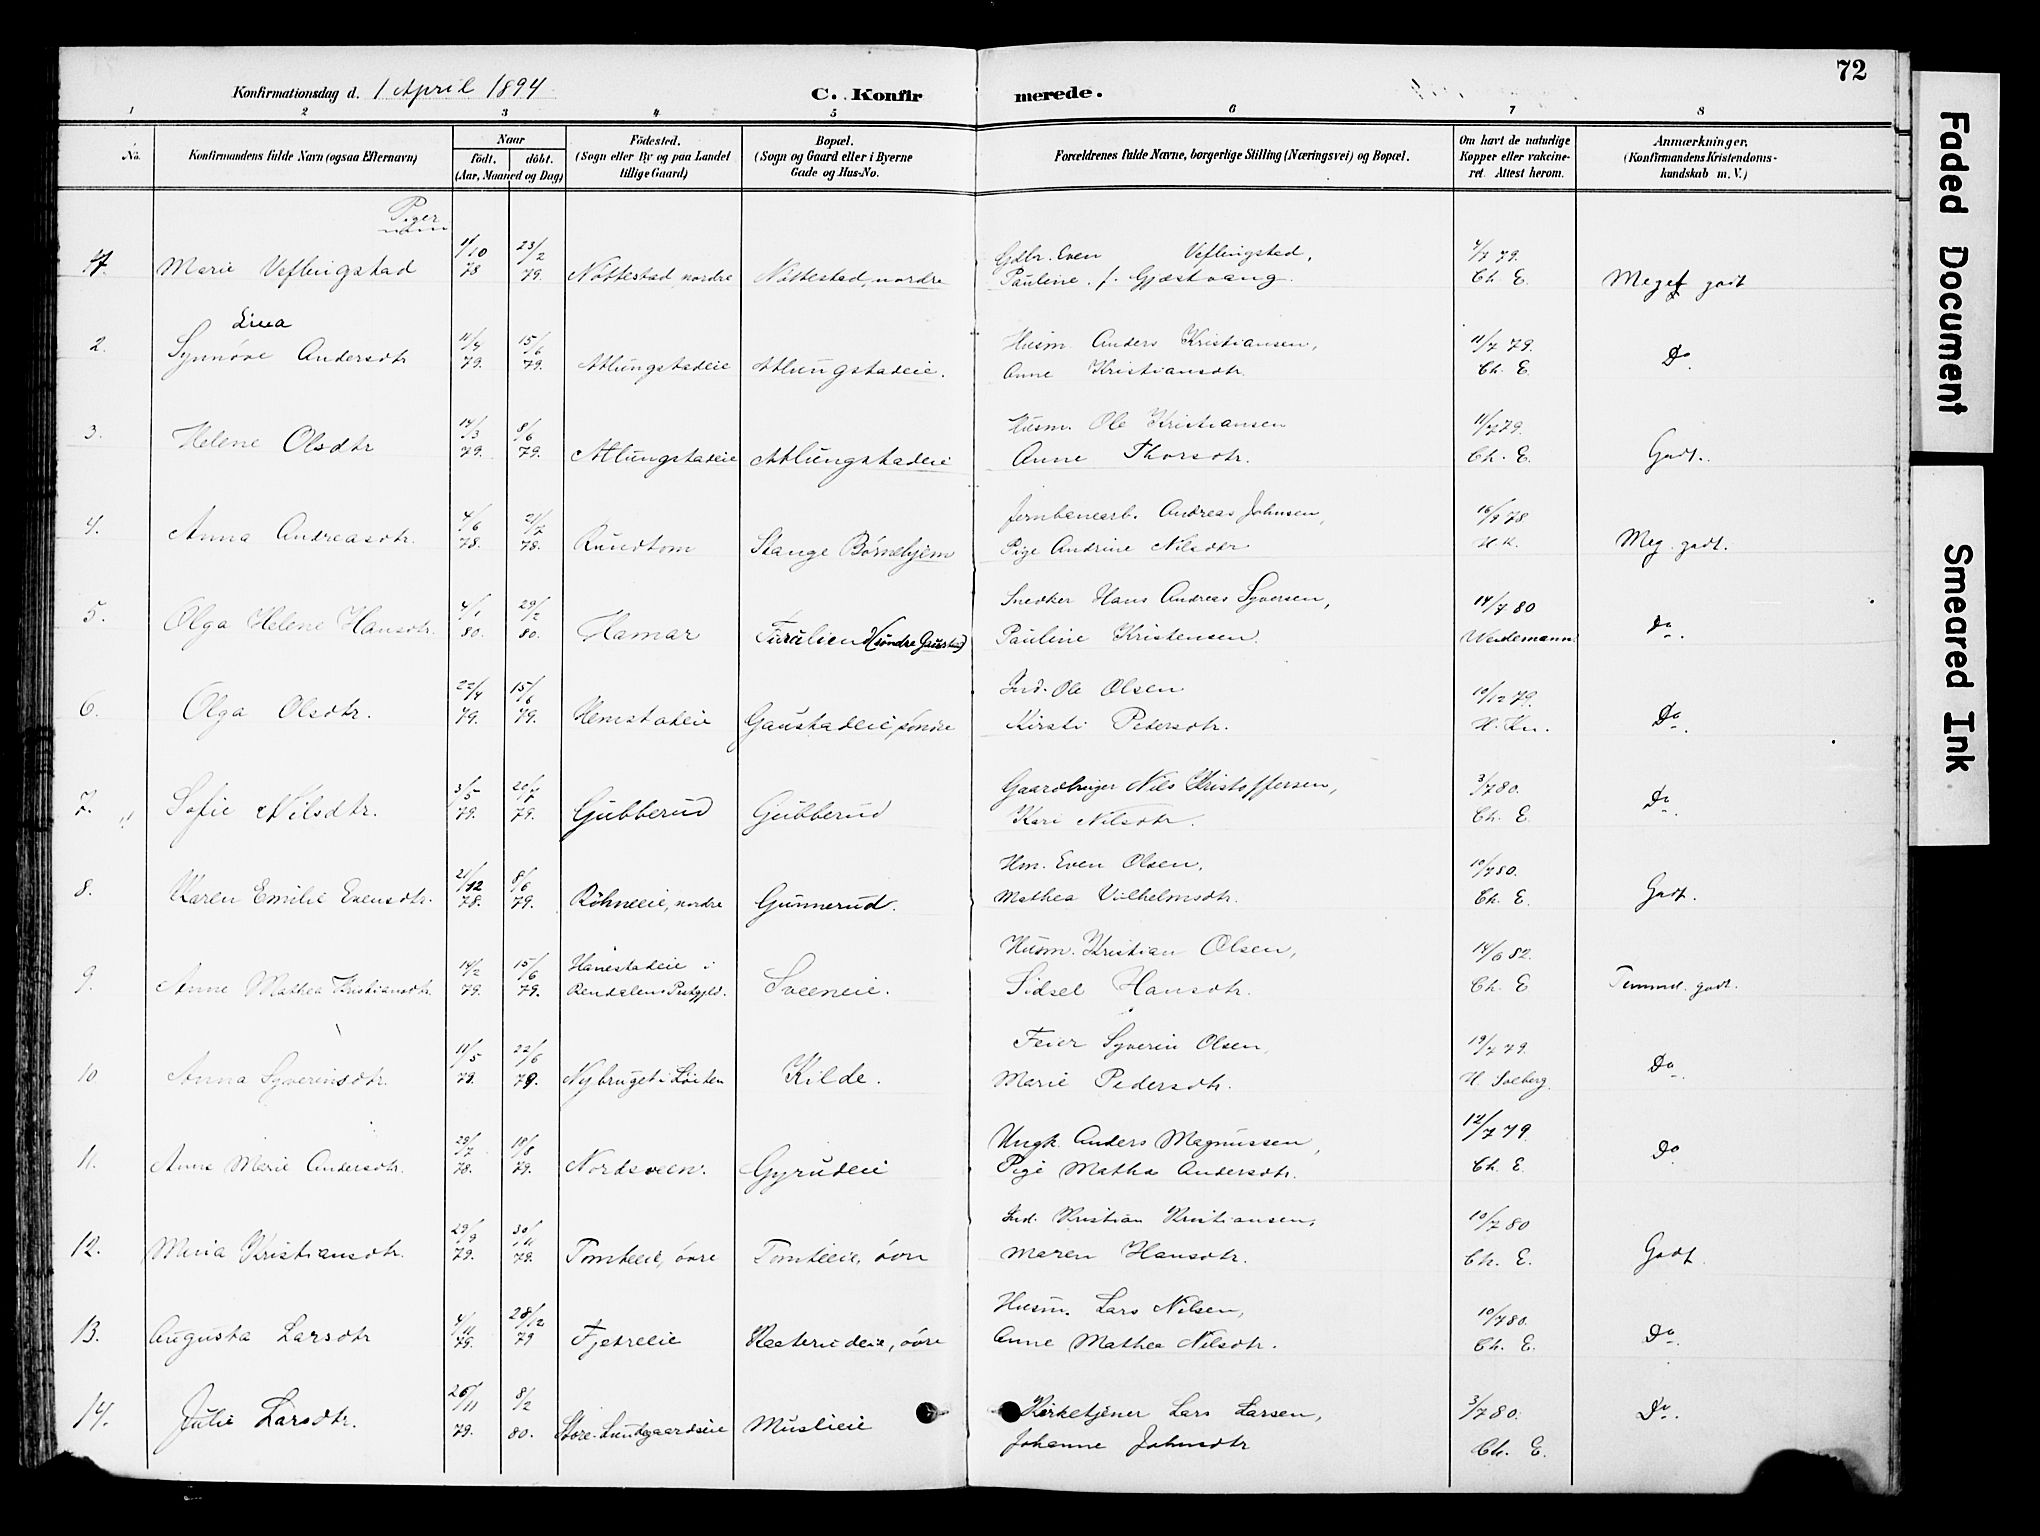 72
Konfirmationsdag d. 1 April 1894
C. Konfirmerede.
1 2 3 4 5 6 7 8
No.
Konfirmandens fulde Navn (ogsaa Efternavn)
Naar
født. døbt.
(Aar, Maaned og Dag)
Fødested.
(Sogn eller By og paa Landet
tillige Gaard)
Bopæl.
(Sogn og Gaard eller i Byerne
Gade og Hus-No.
Forældrenes fulde Navne, borgerlige Stilling (Næringsvei) og Bopæl.
Om havt de naturlige
Kopper eller vakcine-
ret. Attest herom.
Anmærkninger.
(Konfirmandens Kristendoms-
kundskab m. V.)
Piger
Marie Veflingstad 11/10 78 23/2 79. Nøttestad, nordre Nøttestad, nordre
Gdbr. Even Veflingstad,
Pauline, f. Gjæstvang. 4/7 79. Ch. E. Meget godt
2. Synnøve Lina Andersdtr 11/4 79. 15/6 79. Atlungstadeie Atlungstadeie.
Husm. Anders Kristiansen,
Anne Kristiansdtr. 11/7 79. Ch. E. Do.
3. Helene Olsdtr 14/3 79. 8/6 79. Atlungstadeie Atlungstadeie
Husm. Ole Kristiansen
Anne Thorsdtr. 11/7 79. Ch. E. Godt.
4. Anna Andreasdtr. 4/6 78. 21/7 78. Rundtom Stange Børnehjem
Jernbanearb. Andreas Johnsen,
Pige Andrine Nilsdtr 16/9 78 H. K. Meg. godt.
5. Olga Helene Hansdtr. 4/1 80. 29/2 80. Hamar Furulien (søndre Gaustad)
Snedker Hans Andreas Syversen,
Pauline Kristensen. 14/7 80 Weidemann Do.
6. Olga Olsdtr. 22/4 79. 15/6 79. Hemstadeie Gaustadeie, søndre
Ind. Ole Olsen
Kirsti Pedersdtr. 10/12 79. H. Kn. Do.
7. Sofie Nilsdtr. 3/5 79. 20/7 79. Gubberud Gubberud
Gaardbruger Nils Kristoffersen,
Kari Nilsdtr. 3/7 80. Ch. E. Do.
8. Karen Emilie Evensdtr. 21/12 78. 8/6 79. Røhneeie, nordre Gunnerud.
Hm. Even Olsen,
Mathea Vilhelmsdtr. 10/7 80. Ch. E. Godt.
9. Anne Mathea Kristiansdtr. 14/2 79. 15/6 79. Hanestadeie i
Rendalens Prstgjld. Sveeneie.
Husm. Kristian Olsen,
Sidsel Hansdtr. 14/6 82. Ch. E Temmel. godt.
10 Anna Syverinsdtr. 11/5 79. 22/6 79. Nybruget i Løiten Kilde.
Feier Syverin Olsen,
Marie Pedersdtr. 19/7 79. H Solberg. Do.
11. Anna Marie Andersdtr. 29/7 78. 18/8 79. Nordsveen. Gyrudeie
Ungk. Anders Magnussen,
Pige Mathea Andersdtr. 12/7 79. Ch. E. Do
12. Maria Kristiansdtr. 29/9 79. 30/11 79. Tomteeie, øvre Tomteeie, øvre
Ind. Kristian Kristiansen,
Maren Hansdtr. 10/7 80 Ch. E. Godt.
13. Augusta Larsdtr 4/11 79. 28/12 79 Fjetreeie øvre
Husm. Lars Nilsen,
Anne Mathea Nilsdtr. 10/7 80. Ch. E. Do.
14. Julie Larsdtr. 26/11 79. 8/2 80. Store-Lundgaardseie Muslieie
Kirketjener Lars Larsen,
Johanne Johnsdtr 3/7 80. Ch. E. Do.
Faded Document
Smeared Ink